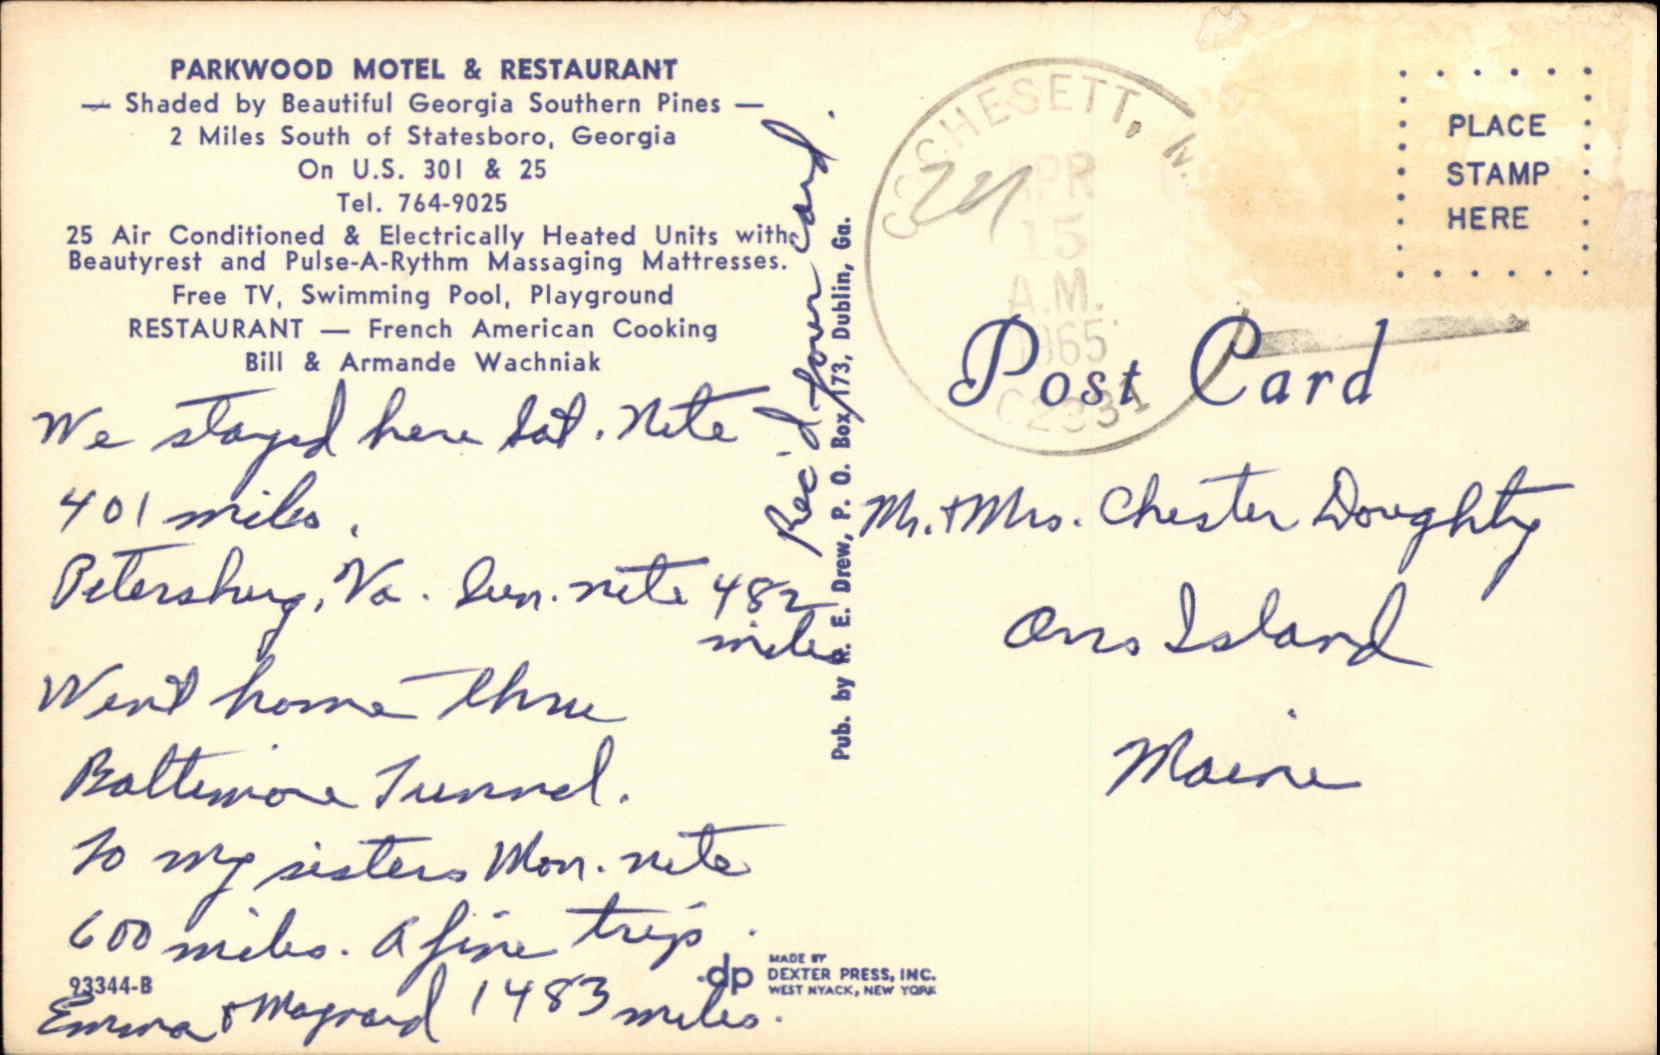 PARKWOOD MOTEL & RESTAURANT
— Shaded by Beautiful Georgia Southern Pines —
2 Miles South of Statesboro, Georgia
On U.S. 301 & 25
Tel. 764-9025
25 Air Conditioned & Electrically Heated Units with
Beautyrest and Pulse-A-Rythm Massaging Mattresses.
Free TV, Swimming Pool, Playground
RESTAURANT — French American Cooking
Bill & Armande Wachniak
We stayed here Sat. Nite
401 miles.
Petersburg, Va. Sun. nite 482
miles
Went home thru
Baltimore Tunnel.
To my sisters Mon. nite
600 miles. A fine trip.
93344-B
Emma & Maynard 1483 miles.
Rec'd your card.
Pub. by R. E. Drew, P. O. Box 173, Dublin, Ga.
dp
MADE BY
DEXTER PRESS, INC.
WEST NYACK, NEW YORK
CHESETT,
APR
15
A.M.
1965
PLACE
STAMP
HERE
Post Card
Mr. & Mrs. Chester Doughty
Orrs Island
Maine